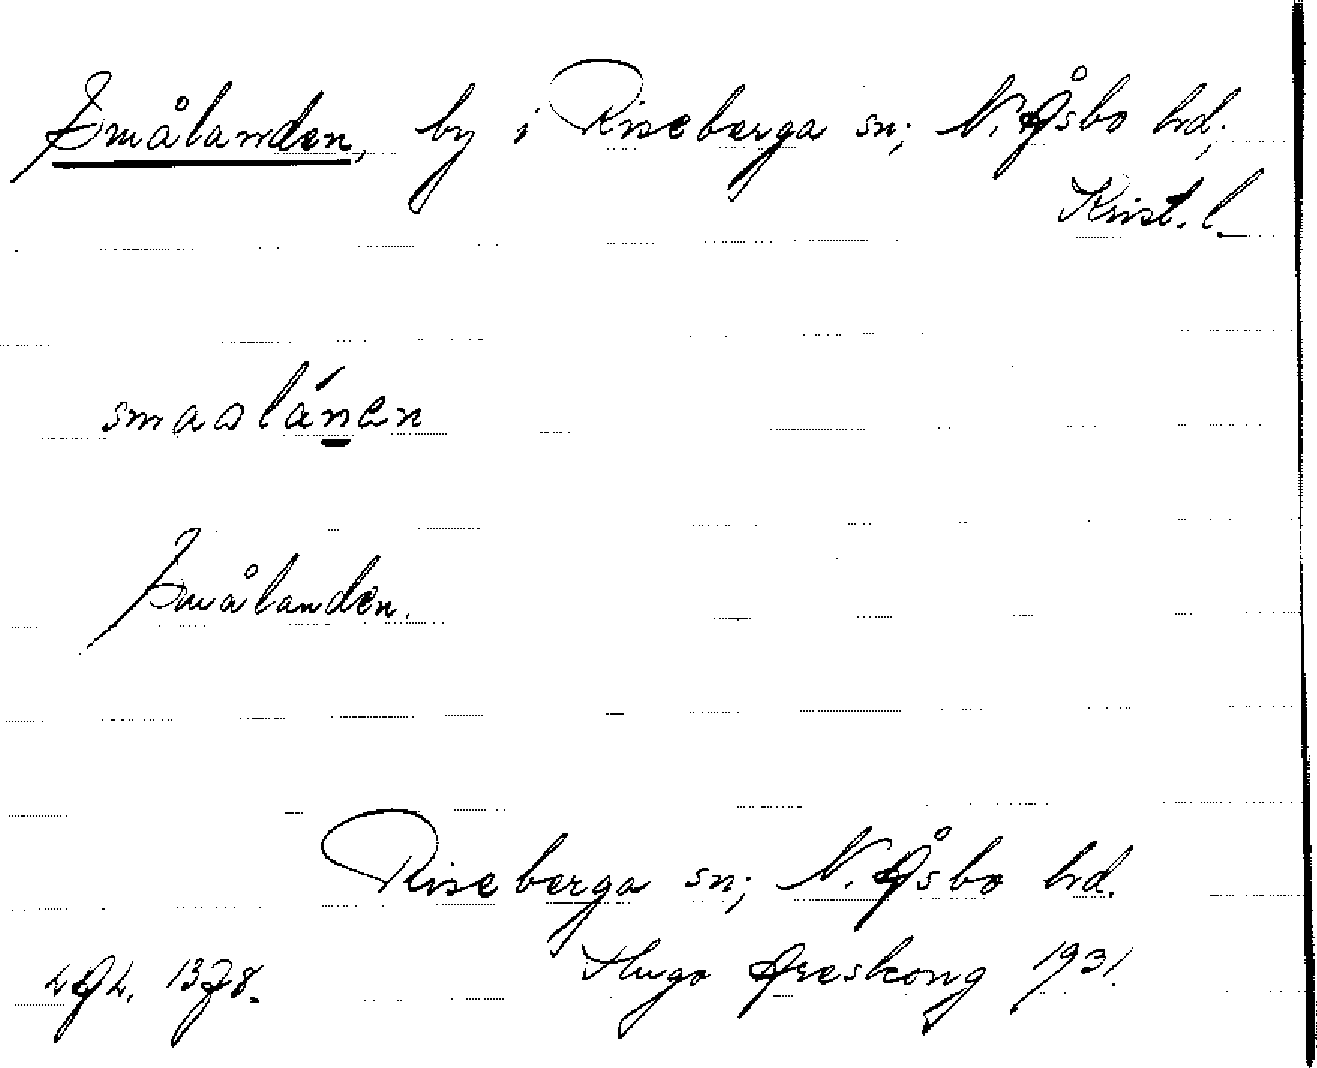 Smålanden, by i Riseberga sn; N. Åsbo hd;
Krist. l.
smaalánen
Smålanden.
Riseberga sn; N. Åsbo hd.
Hugo Areskoug 1931.